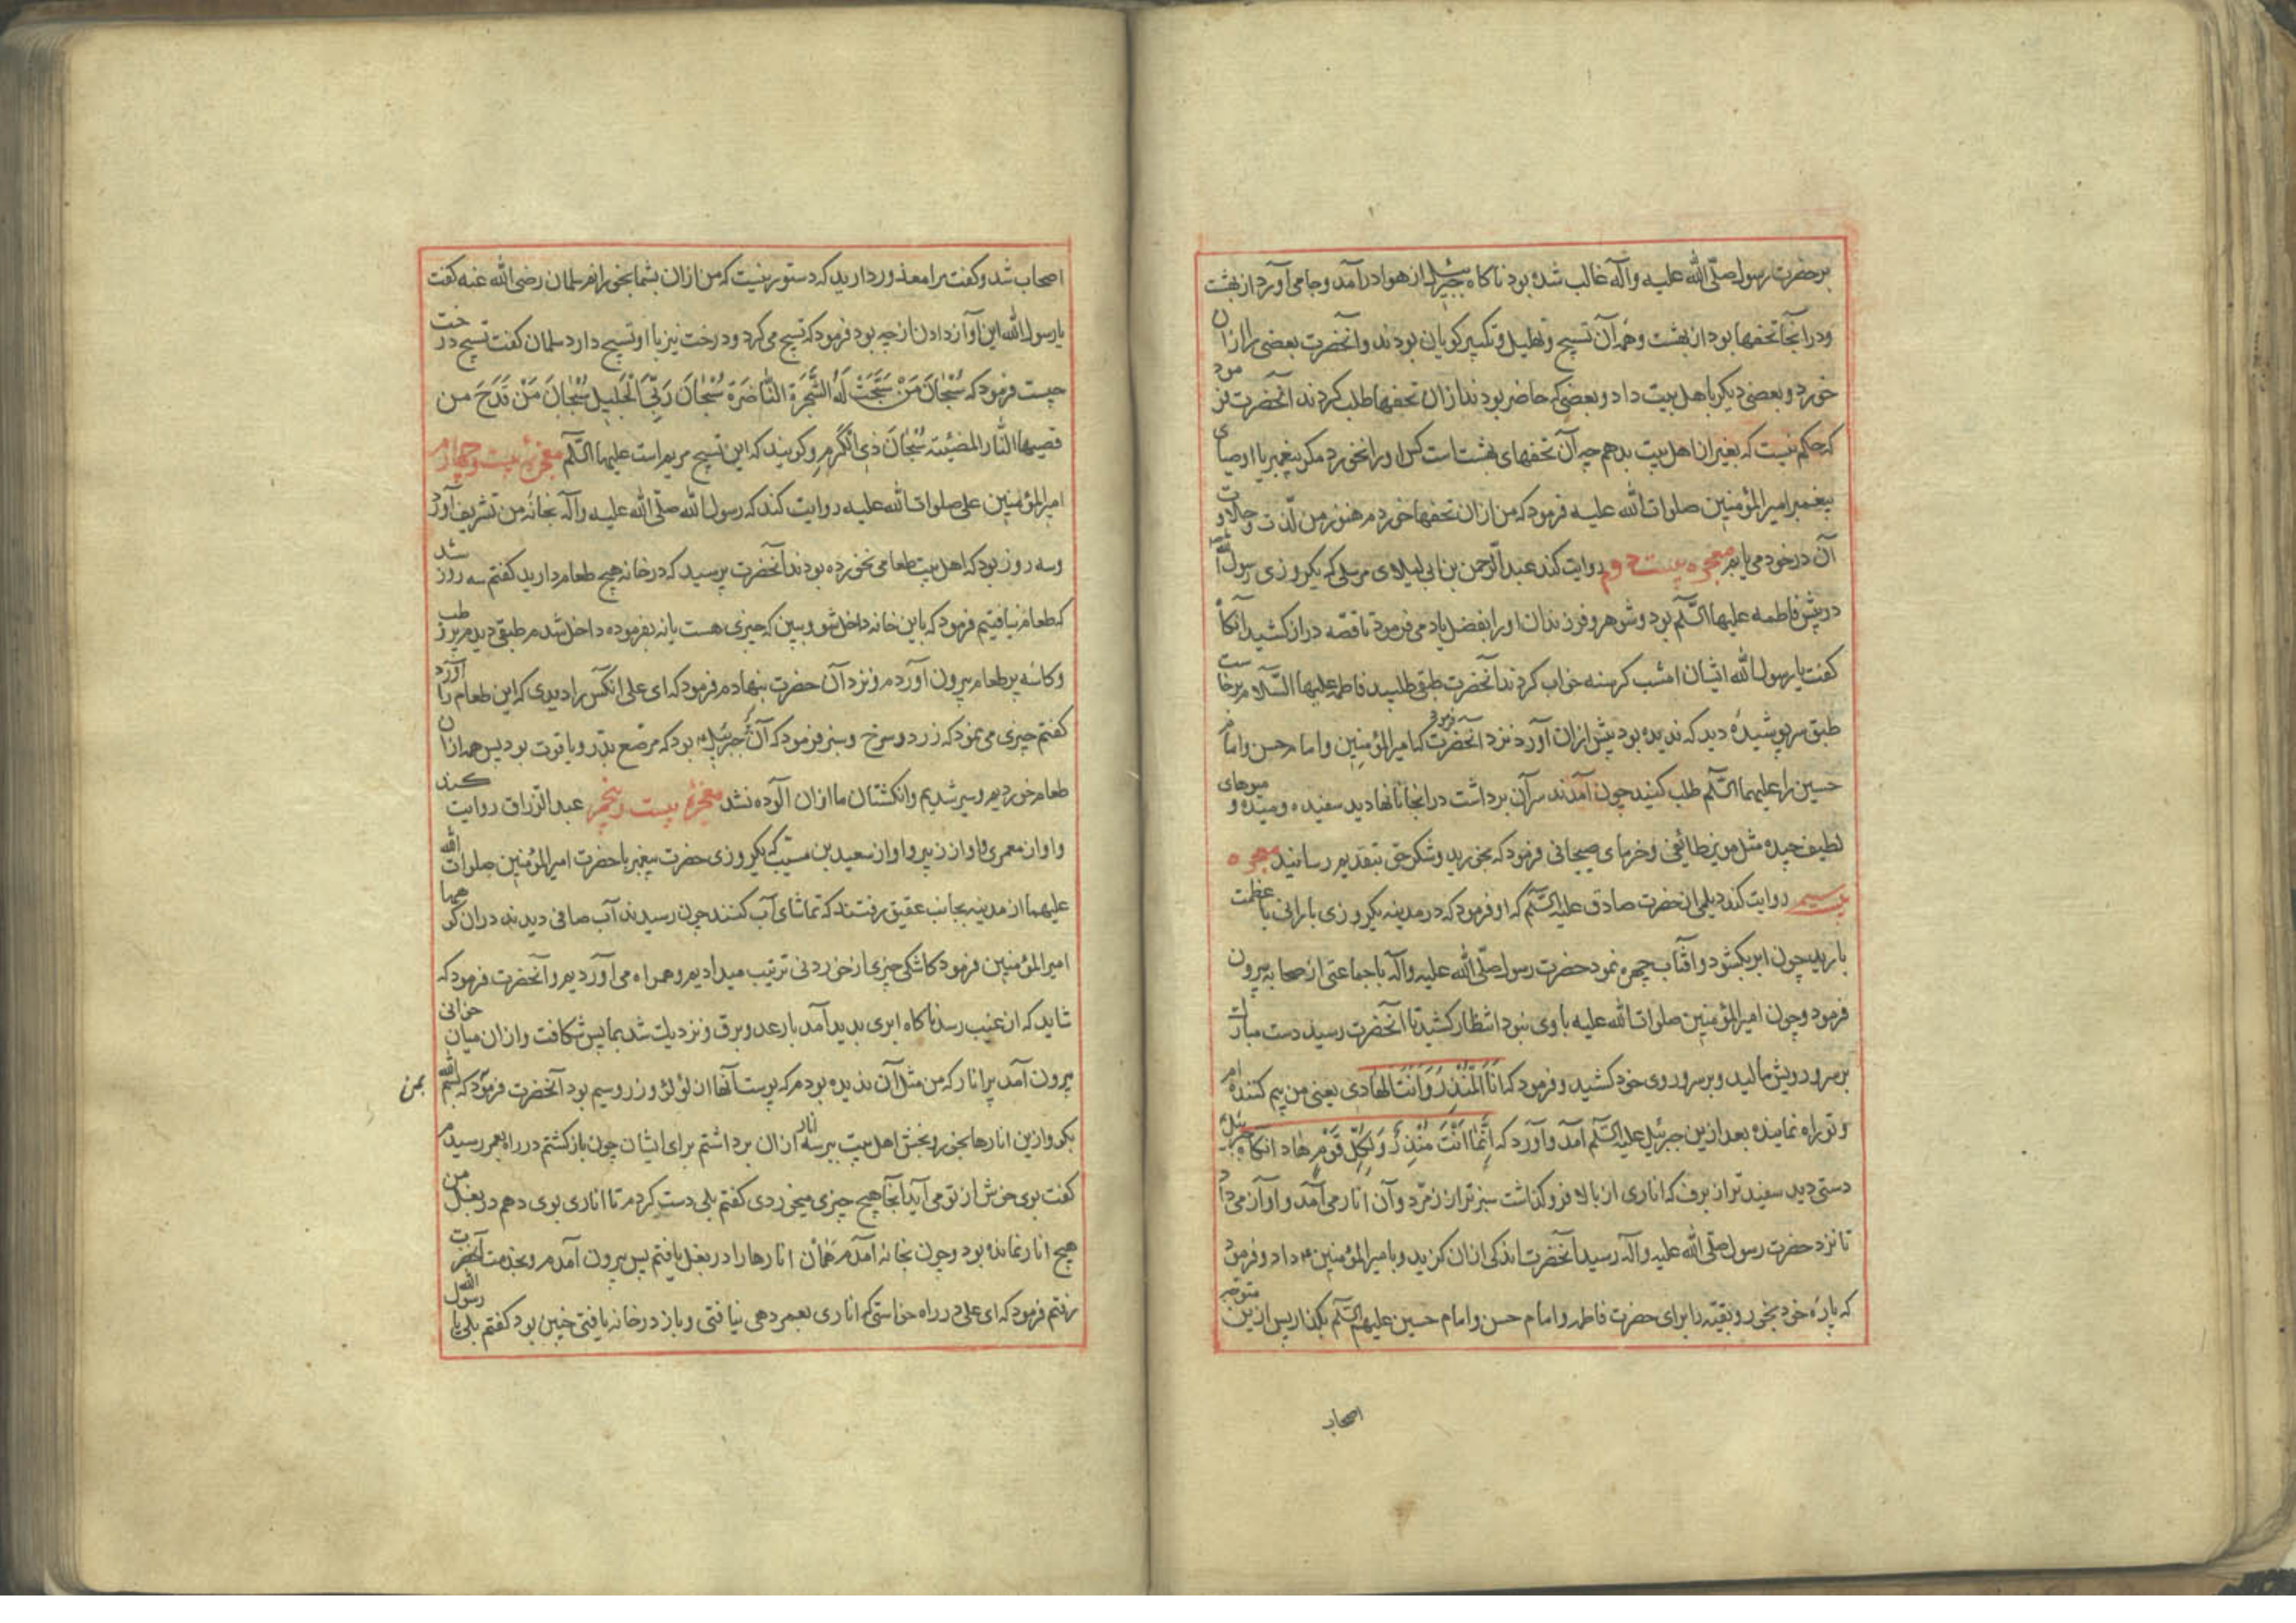 بر حضرت رسول صلّی الله علیه وآله غالب شده بود ناکاه جبرئیل از هوا درآمد و جامی آورد از بهشت
ودرانجا تحفها بود از بهشت وهمه آن تسبیح وتهلیل وتکبیر کویان بودند وآنحضرت بعضی را ازان
خورد وبعضی دیکر باهل بیت داد وبعضی که حاضر بودند ازان تحفها طلب کردند آنحضرت فرمود
که حکم نیست که بغیر از اهل بیت بدهم چه آن تحفهای بهشت است کس اورا نخورد مکر پیغمبر یا اوصیای
پیغمبر امیرالمؤمنین صلوات الله علیه فرمود که من ازان تحفها خوردم هنوز من لذّت وحلاوت
آن در خود می یابم معجزه بیست دوم روایت کند عبدالرّحمن بن ابی لیلای مرسلی که یکروزی رسول الله
در پیش فاطمه علیها السّلم بود وشوهر وفرزندان اورا بفضل یاد می فرمود تا قصّه دراز کشید آنکاه
کفت یا رسول الله ایشان امشب کرسنه خواب کردند آنحضرت طبق طلبید فاطمه علیها السّلام برخاست
طبق سرپوشیدهٔ دید که ندیده بود پیش ازان آورد نزد آنحضرت فرمود که امیرالمؤمنین وامام حسن وامام
حسین را علیهما السّلم طلب کنید چون آمدند سرآن برداشت درانجا نانها دید سفیده ومیده و میوهای
لطیف چیده مثل مویز طائفی وخرمای صیحانی فرمود که بخورید وشکر حق بتقدیم رسانید معجزه
بیست سیم روایت کند دیلمی از حضرت صادق علیه السّلم که او فرمود که در مدینه یکروزی بارانی با عظمت
بارید چون ابر بکشود وآفتاب چهره نمود حضرت رسول صلّی الله علیه وآله با جماعتی از صحابه بیرون
فرمود وچون امیرالمؤمنین صلوات الله علیه با وی نبود انتظار کشید تا آنحضرت رسید دست مبارک
بر سر و رویش مالید وبر سر و روی خود کشید وفرمود که اَنَا الْمُنْذِرُ وَاَنْتَ الهادی یعنی من بیم کننده ام
وتو راه نماینده بعد ازین جبرئیل علیه السّلم آمد وآورد که اِنَّمَا اَنْتَ مُنْذِرٌ وَلِکُلِّ قَوْمٍ هَاد آنکاه جبرئیل
دستی دید سفیدتر از برف که اناری از بالا فرو کذاشت سبزتر از زمرّد وآن انار می آمد وآواز می داد
تا نزد حضرت رسول صلّی الله علیه وآله رسید آنحضرت اندکی ازان کزید وبامیرالمؤمنین داد وفرمود
که پارهٔ خود بخور وبقیّه را برای حضرت فاطمه وامام حسن وامام حسین علیهم السّلم بکذار پس ازین متوجه
اصحاب
اصحاب شد وکفت مرا معذور دارید که دستور نیست که من ازان بشما بخورانم سلمان رضی الله عنه کفت
یا رسول الله این آواز دادن از چه بود فرمود که تسبیح می کرد ودرخت نیز با او تسبیح دارد سلمان کفت تسبیح درخت
چیست فرمود که سُبْحَانَ مَنْ سَبَّحَتْ لَهُ الشَّجَرَةُ النَّاضِرَة سُبْحَانَ رَبِّیَ الْجَلِیل سُبْحَانَ مَنْ قَدَحَ من
قضیبها النّار المضیئة سُبْحَانَ ذِی الْکَرَمِ وکویند که این تسبیح مریم است علیها السّلم معجزهٔ بیست وچهارم
امیرالمؤمنین علی صلوات الله علیه روایت کند که رسول الله صلّی الله علیه وآله بخانهٔ من تشریف آورد
وسه روز بود که اهل بیت طعامی نخورده بودند آنحضرت پرسید که در خانه هیچ طعام دارید کفتم سه روز شد
که طعام نیافتیم فرمود که باین خانه داخل شو وببین که چیزی هست یا نه بفرموده داخل شدم طبقی دیدم پر رطب
وکاسهٔ پر طعام بیرون آوردم ونزد آن حضرت بنهادم فرمود که ای علی آنکس را دیدی که این طعام را آورد
کفتم چیزی می نمود که زرد وسرخ وسبز فرمود که آن پر جبرئیل بود که مرصّع بدرّ ویاقوت بود پس همه ازان
طعام خوردیم وسیر شدیم وانکشتان ما ازان آلوده نشد معجزهٔ بیست وپنجم عبد الرّزاق روایت کند
واو از معمری واو از زبیر واو از سعید بن مسیّب که یکروزی حضرت پیغمبر با حضرت امیرالمؤمنین صلوات الله
علیهما از مدینه بجانب عقیق رفتند که تماشای آب کنند چون رسیدند آب صافی دیدند دران کوهها
امیرالمؤمنین فرمود کاشکی چیزی از خوردنی ترتیب میدادیم وهمراه می آوردیم وآنحضرت فرمود که
شاید که از غیب رسد ناکاه ابری بدید آمد با رعد وبرق ونزدیک شد بما پس شکافت وازان میان خوانی
بیرون آمد پر انار که من مثل آن ندیده بودم که پوست آنها از لؤلؤ وزر وسیم بود آنحضرت فرمود که بسم الله
بمن
بکو وازین انارها بخور وبخش اهل بیت ببر سه انار ازان برداشتم برای ایشان چون بازکشتم در راه بعمر رسیدم
کفت بوی خوش از تو می آید آنجا هیچ چیزی میخوردی کفتم بلی دست کردم تا اناری بوی دهم در بغل من
هیچ انار نمانده بود وچون بخانه آمدم همان انارها را در بغل یافتم پس بیرون آمدم وبخدمت آنحضرت
رفتم فرمود که ای علی در راه خواستی که اناری بعمر دهی نیافتی وباز در خانه یافتی چنین بود کفتم بلی یا رسول الله